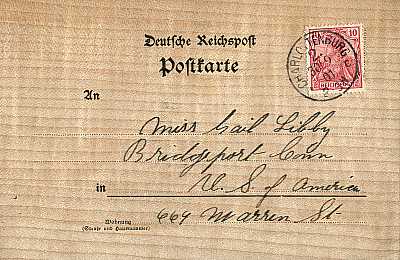 Deutsche Reichspost
Postkarte
10
REICHSPOST
CHARLOTTENBURG
An
Miss Gail Libby
Bridgeport Conn
in
U. S. of America
Wohnung
(Straße und Hausnummer)
669 Warren St.